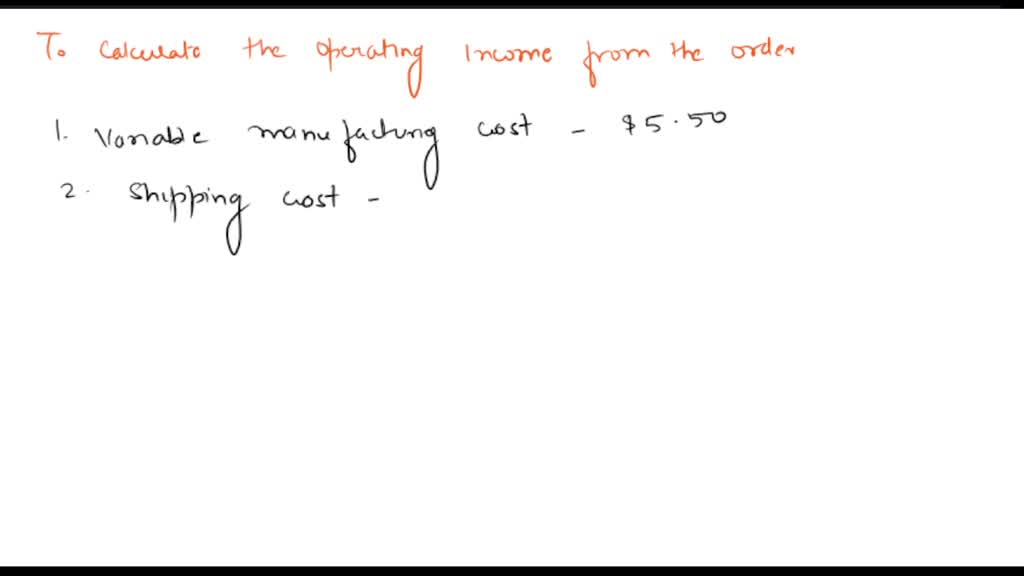 To calculate the operating income from the order
1. Variable manufacturing cost - $5.50
2. Shipping cost -